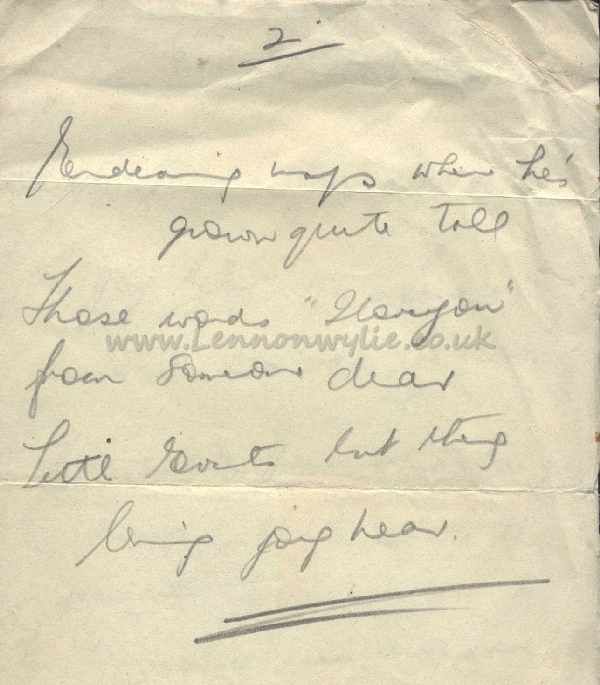 2.
Endearing ways when he's
grown quite tall
Those words "I love you"
www.Lennonwylie.co.uk
from someone dear
Little Events but they
bring joy